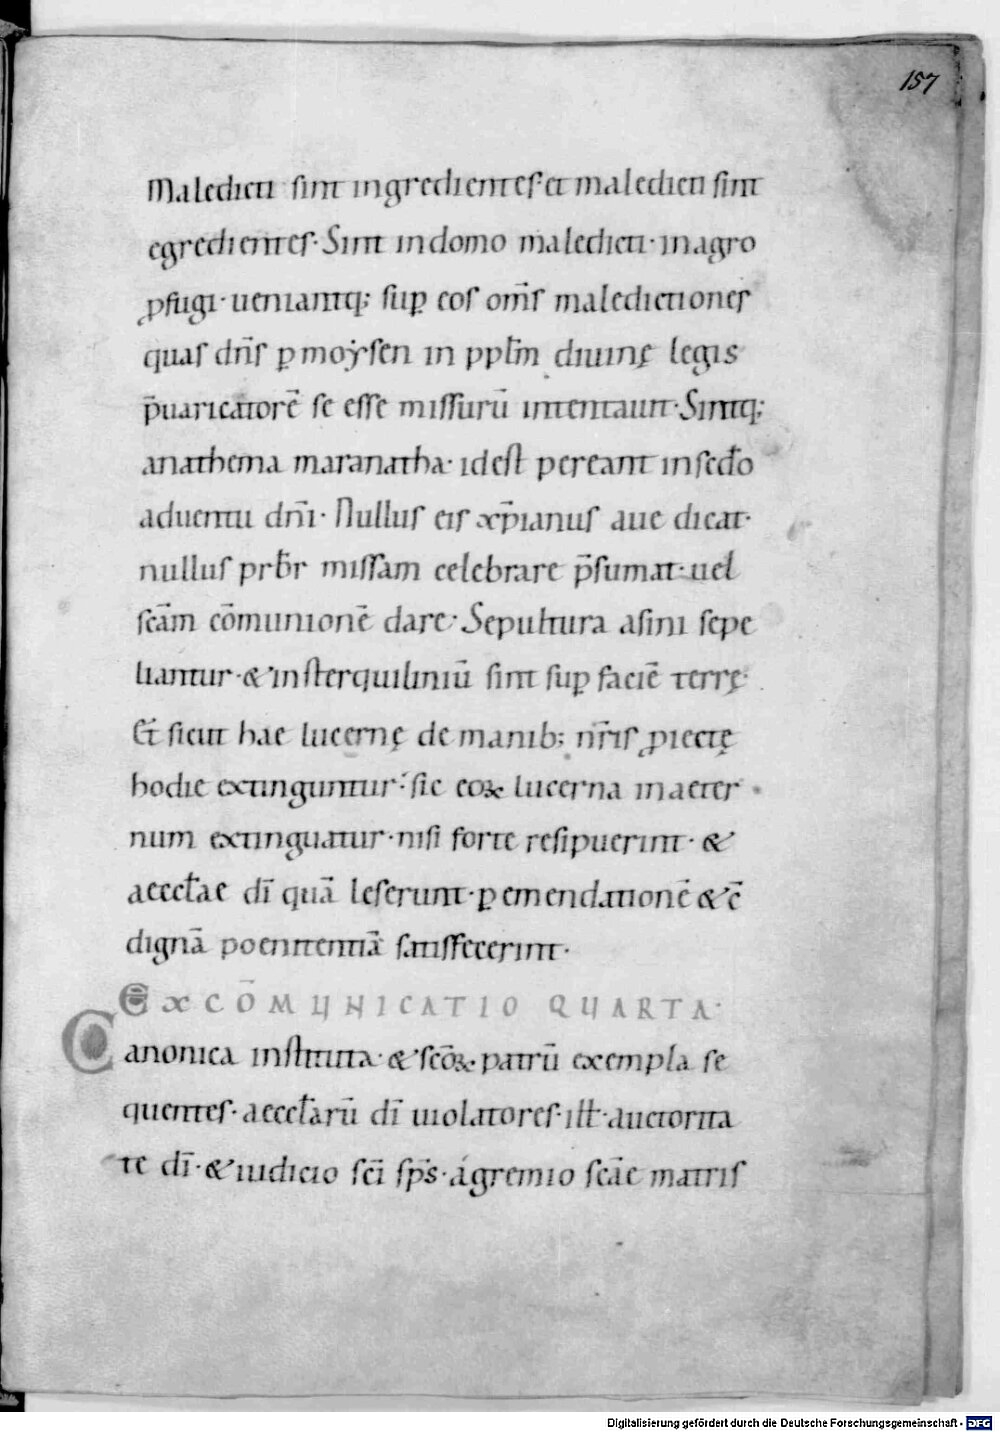 157
Maledicti sint ingredientes· et maledicti sint
egredientes· Sint in domo maledicti· in agro
ꝓfugi· ueniantq; suꝑ eos om̄s maledictiones
quas dn̄s ꝑ moẏsen in ppl̄m diuinę legis
p̄uaricatorē se esse missurū intentauit· Sintq;
anathema maranatha· id est pereant in sc̄do
aduentu dn̄i· Nullus eis xp̄ianus aue dicat·
nullus prb̄r missam celebrare p̄sumat· uel
sc̄am cōmunionē dare· Sepultura asini sepe
liantur· & in sterquiliniū sint suꝑ faciē terrę·
Et sicut hae lucernę de manib; nr̄is ꝓiectę
hodie extinguntur· sic eoꝝ lucerna in aeter
num extinguatur· nisi forte resipuerint· &
aeccl̄ae dī quā leserunt· ꝑ emendationē & c̄
dignā poenitentiā satisfecerint·
EXCŌMUNICATIO QUARTA·
Canonica instituta· & sc̄oꝝ· patrū exempla se
quentes· aeccl̄arū dī uiolatores· ill̄· auctorita
te dī· & iudicio sc̄i sp̄s· á gremio sc̄ae matris
Digitalisierung gefördert durch die Deutsche Forschungsgemeinschaft - DFG